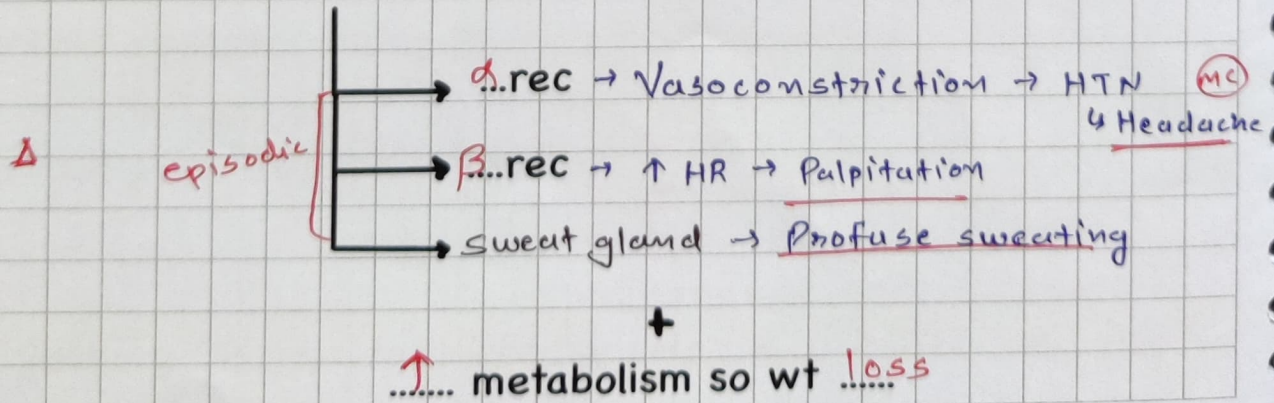 α.rec → Vasoconstriction → HTN MC
↳ Headache
Δ episodic β...rec → ↑ HR → Palpitation
sweat gland → Profuse sweating
+
..↑.... metabolism so wt loss